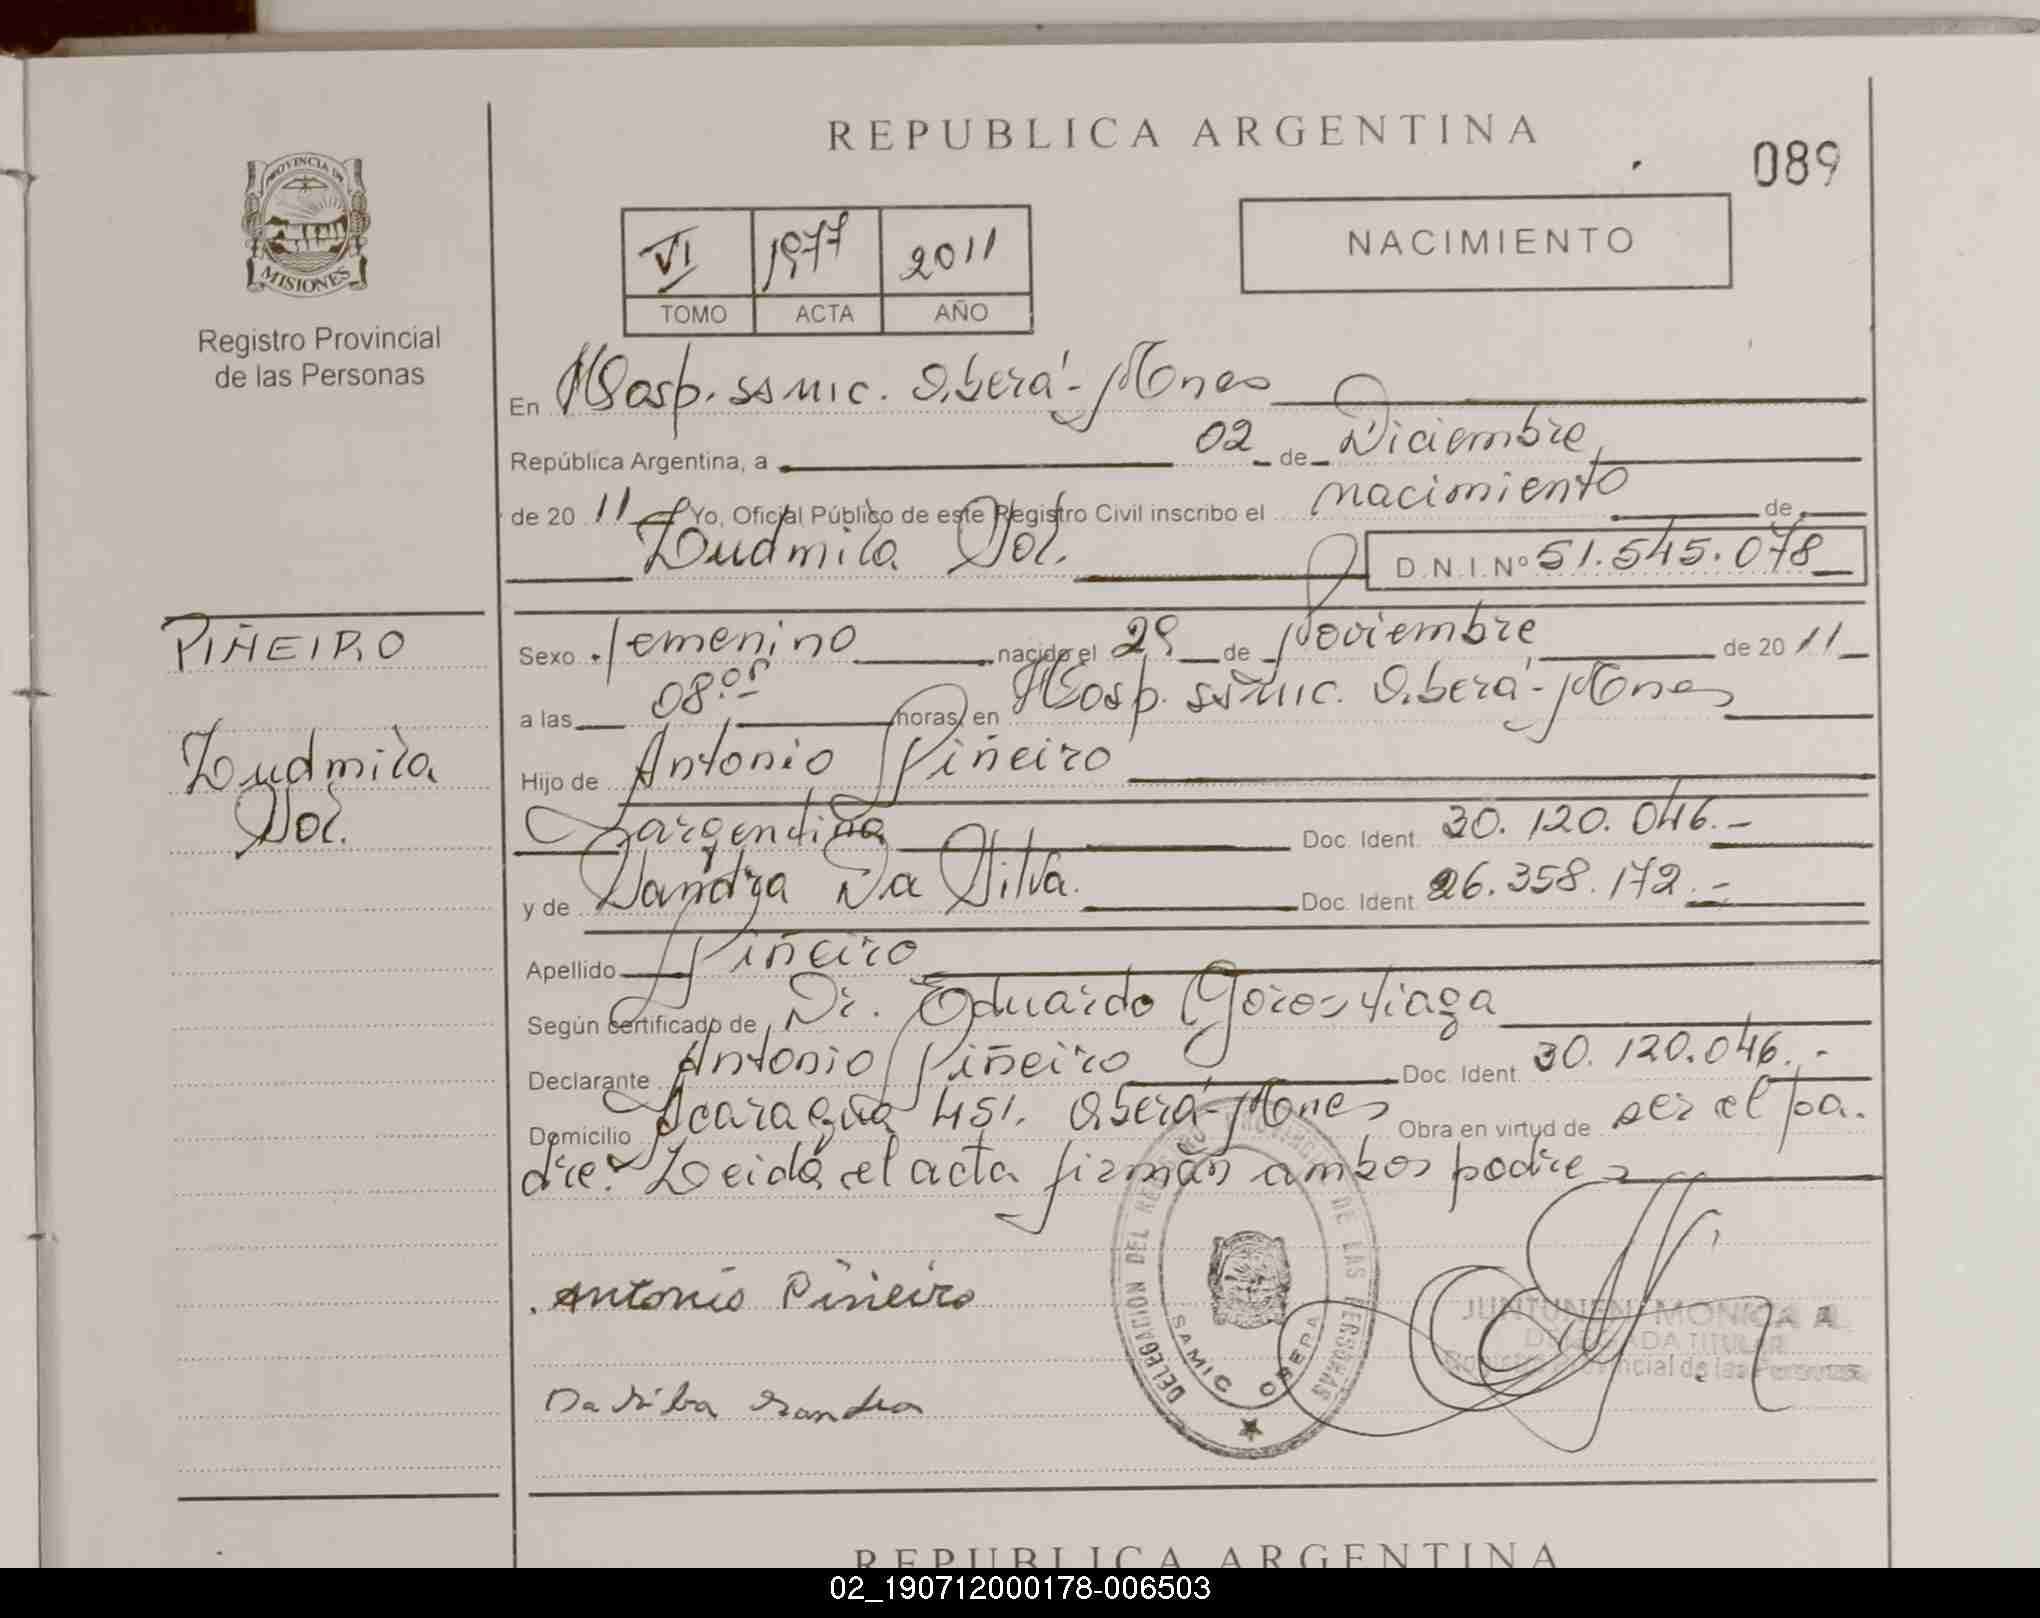 REPUBLICA ARGENTINA
089
PROVINCIA DE
MISIONES
Registro Provincial
de las Personas
VI 1977 2011
TOMO ACTA AÑO
NACIMIENTO
En Hosp. SSMIC. Oberá - Mnes
República Argentina, a 02 de Diciembre
de 20 11 Yo, Oficial Público de este Registro Civil inscribo el nacimiento de
Ludmila Sol. D.N.I. Nº 51.545.078
PIÑEIRO
Ludmila
Sol.
Sexo femenino nacido el 29 de Noviembre de 20 11
a las 08:05 horas, en Hosp. SSMIC. Oberá - Mnes
Hijo de Antonio Piñeiro
argentina Doc. Ident. 30.120.046.-
y de Sandra Da Silva. Doc. Ident. 26.358.172.-
Apellido Piñeiro
Según certificado de Dr. Eduardo Gorostiaga
Declarante Antonio Piñeiro Doc. Ident. 30.120.046.-
Domicilio Acaragua 451. Oberá - Mnes Obra en virtud de ser el pa.
dre. Leida el acta firman ambos padres
Antonio Piñeiro
Da Silba Sandra
DELEGACION DEL REGISTRO PROVINCIAL DE LAS PERSONAS
SAMIC OBERA
JUNTUNEN MONICA A.
DELEGADA TITULAR
Registro Provincial de las Personas
REPUBLICA ARGENTINA
02_190712000178-006503